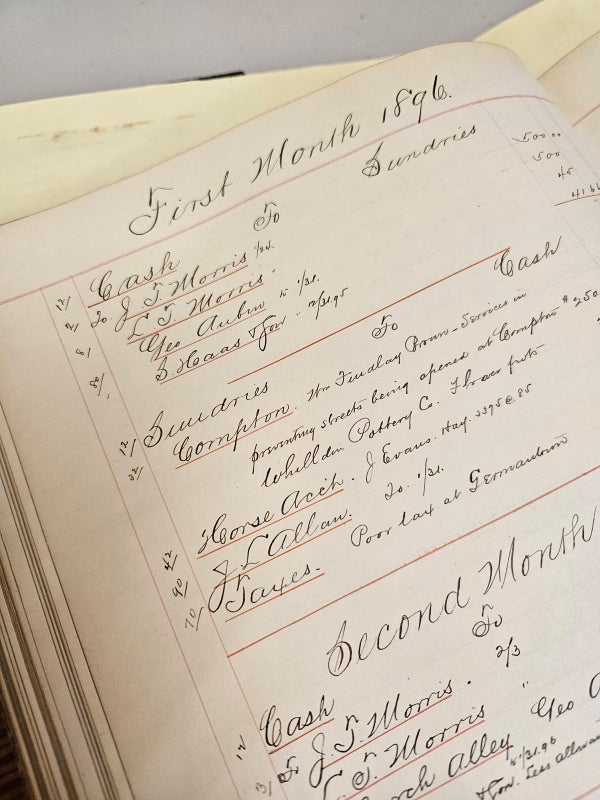 First Month 1896.
Cash To Sundries
12/ To. J. T. Morris 1/24. 500..
2/ L. T. Morris " 500
8/ Geo Aubin to 1/31. 45
80/ S. Haas & Son " 12/31.95 4166
Sundries To Cash
12/ Compton. Wm Findlay Brown - Services in
32/ preventing streets being opened at Compton $250.
Whilldin Pottery Co. Flower pots
42/ Horse Acct. J Evans. Hay. 3395 @ 85
90/ J L Allan. To. 1/31.
70/ Taxes. Poor tax at Germantown
Second Month
Cash To
12/ To J. T. Morris. 2/3
3/ L. T. Morris "
Alley Geo
Son. Less